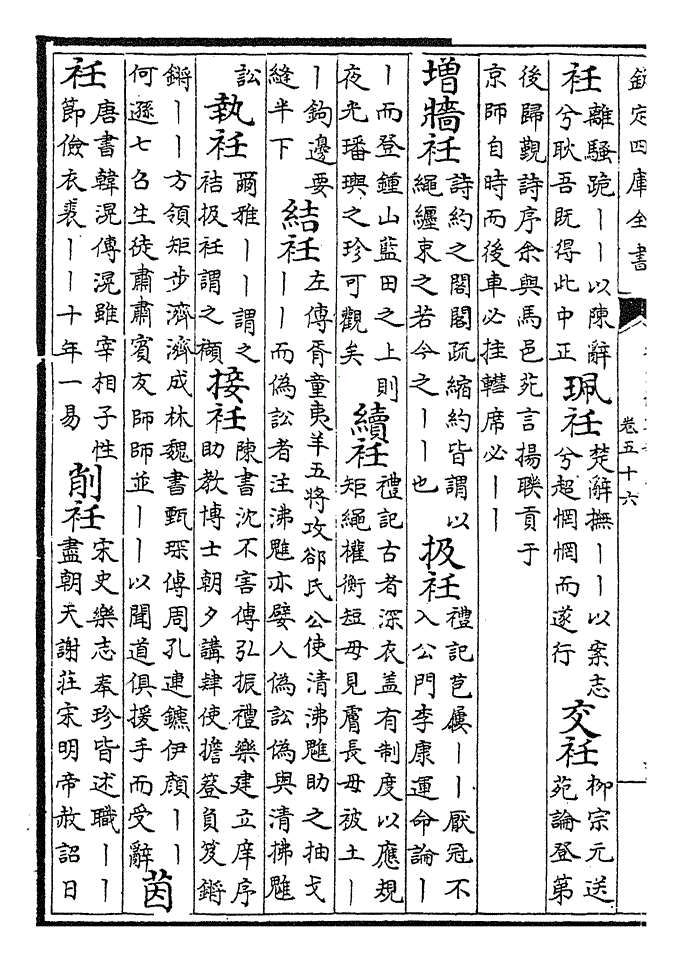 欽定四庫全書
卷五十六
衽
離騷跪丨丨以陳辭
兮耿吾既得此中正
珮衽
楚辭撫丨丨以案志
兮超惘惘而遂行
交衽
柳宗元送
苑論登第
後歸覲詩序余與馬邑苑言揚聨貢于
京師自時而後車必挂轊席必丨丨
増牆衽
詩約之閣閣疏縮約皆謂以
繩纒束之若今之丨丨也
扱衽
禮記苞屨丨丨厭冠不
入公門李康運命論丨
丨而登鍾山藍田之上則
夜光璠璵之珍可觀矣
續衽
禮記古者深衣盖有制度以應規
矩繩權衡短毋見膚長毋被土丨
丨鉤邊要
縫半下
結衽
左傳胥童夷羊五將攻郤氏公使清沸魋助之抽戈
丨丨而偽訟者注沸魋亦嬖人偽訟偽與清拂魋
訟
執衽
爾雅丨丨謂之
袺扱衽謂之襭
接衽
陳書沈不害傳弘振禮樂建立庠序
助教博士朝夕講肄使擔簦負笈鏘
鏘丨丨方領矩步濟濟成林魏書甄琛傅周孔連鑣伊顏丨丨
何遜七召生徒肅肅賓友師師並丨丨以聞道俱援手而受辭
茵
衽
唐書韓滉傳滉雖宰相子性
節儉衣裘丨丨十年一易
削衽
宋史樂志奉珍皆述職丨丨
盡朝天謝莊宋明帝赦詔日